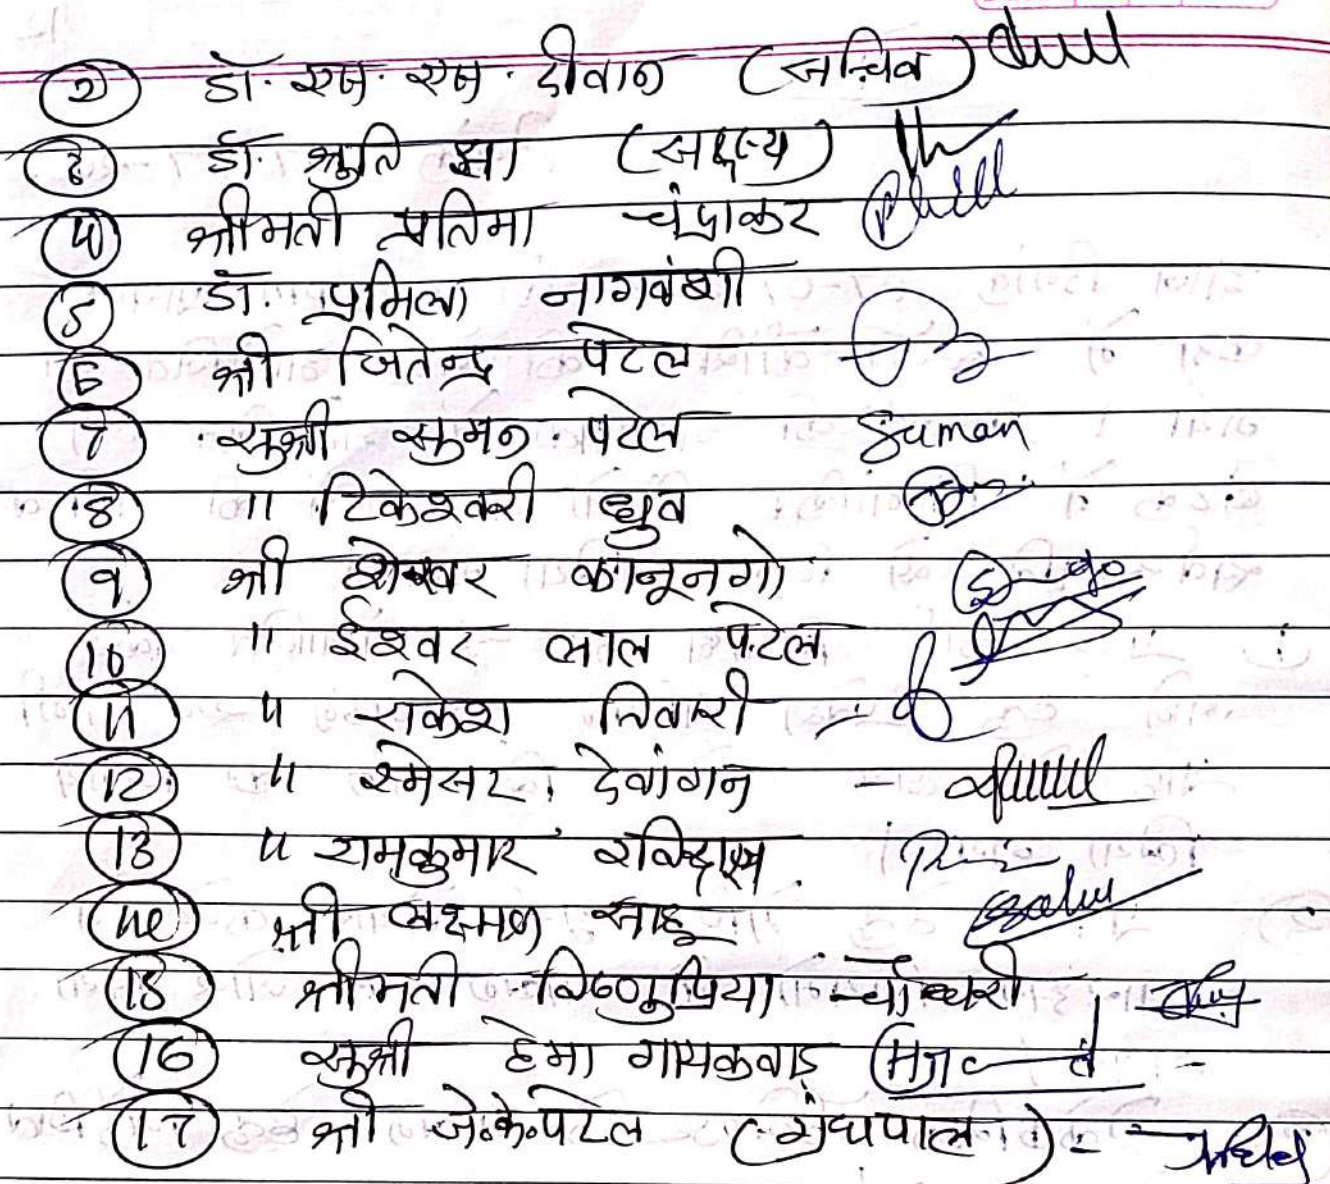 2 डॉ. एस. एस. दीवान (सचिव)
3 डॉ. श्रुति झा (सदस्य)
4 श्रीमती प्रतिमा चंद्राकर
5 डॉ. प्रमिला नागवंशी
6 श्री जितेन्द्र पटेल
7 सुश्री सुमन पटेल Suman
8 " टिकेश्वरी ध्रुव
9 श्री कानूनगो
10 " ईश्वर लाल पटेल
11 " राकेश तिवारी -
12 " देवांगन -
13 " रामकुमार रविदास
14 श्री लक्ष्मण साहू Sahu
15 श्रीमती विष्णुप्रिया चौधरी
16 सुश्री हेमा गायकवाड़
17 श्री जे.के.पटेल (ग्रंथपाल)